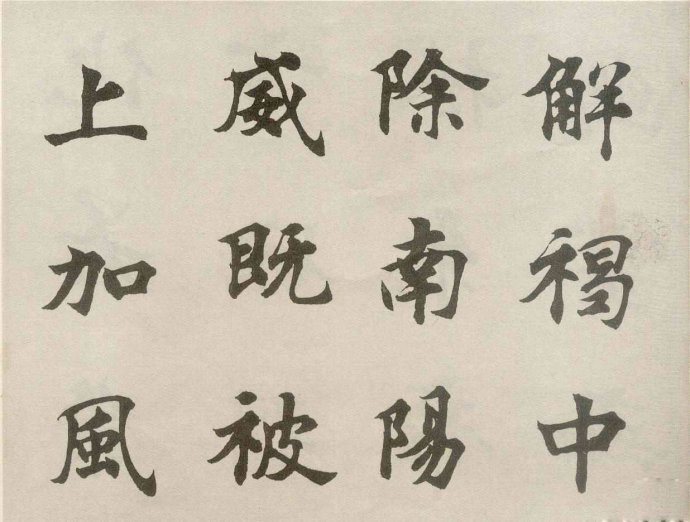 解褐中
除南陽
威既被
上加風